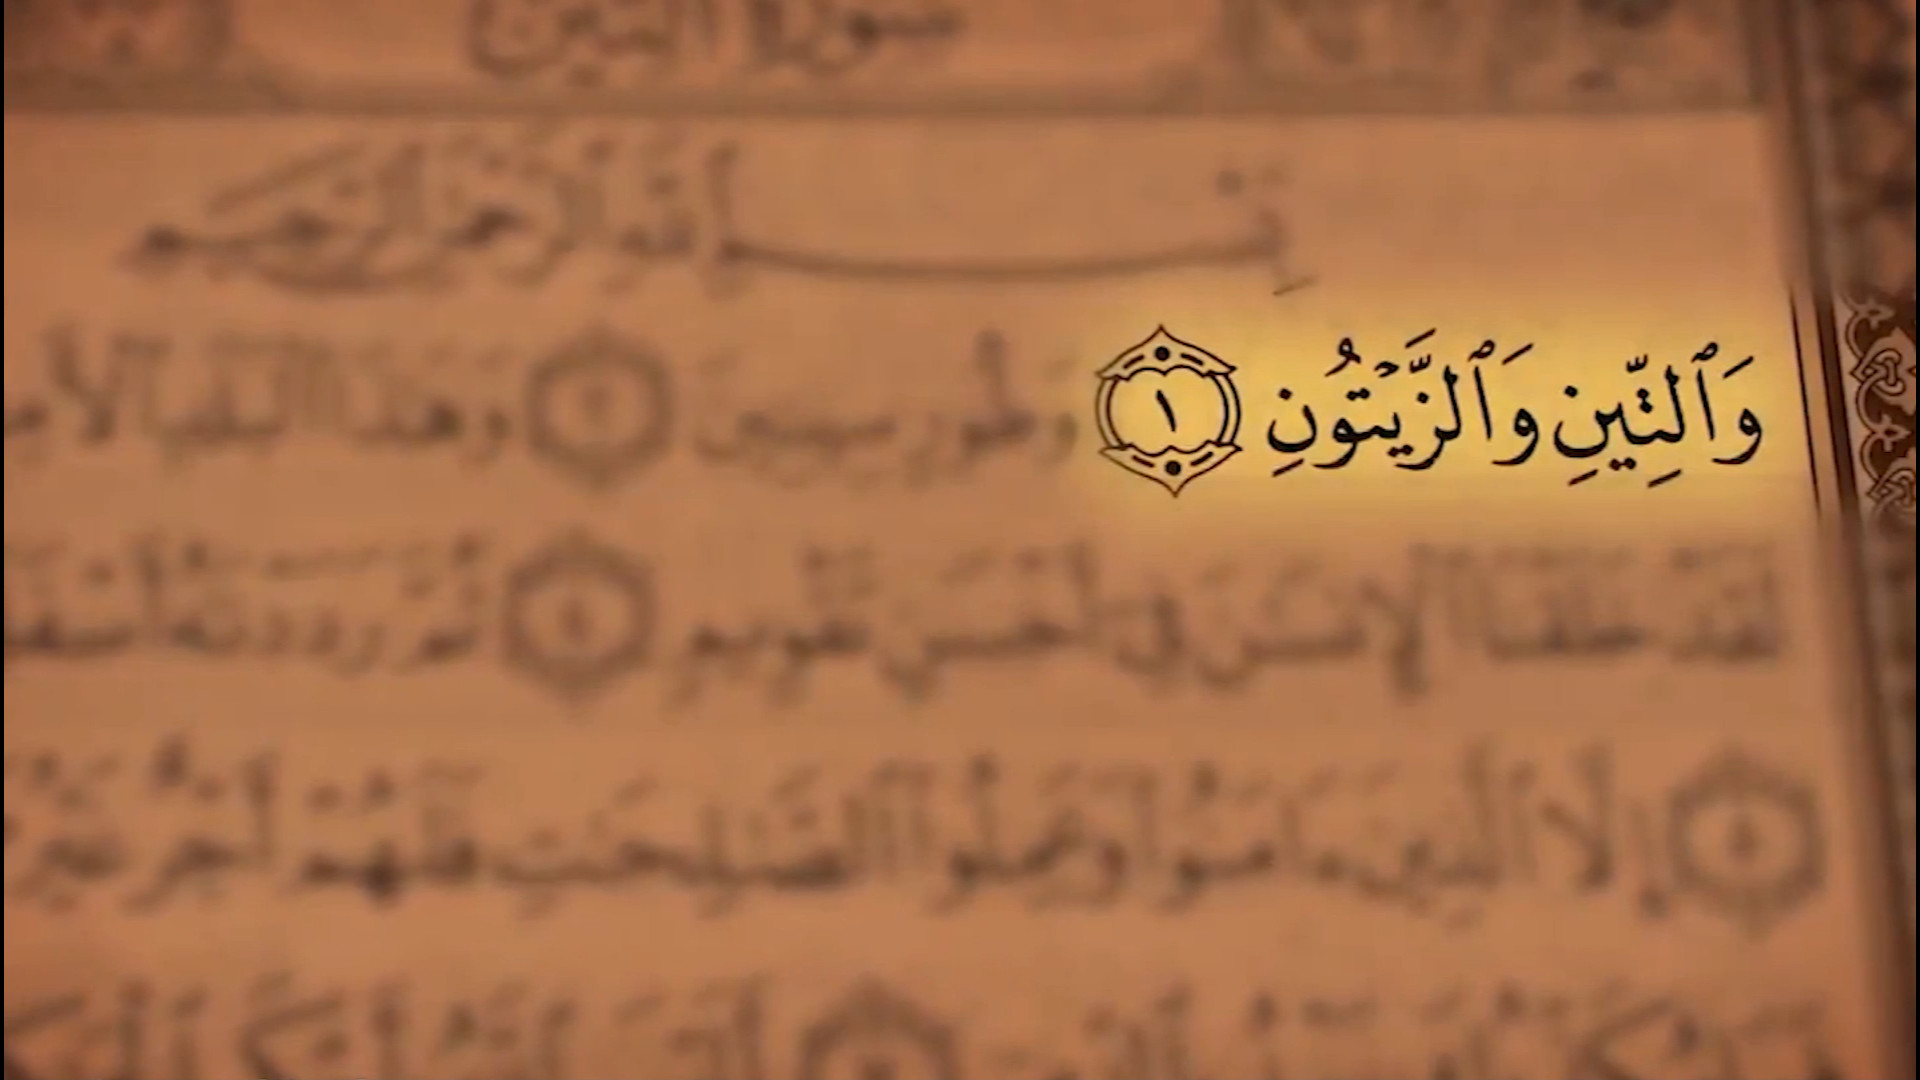 سورة التين
بِسْمِ ٱللَّهِ ٱلرَّحْمَٰنِ ٱلرَّحِيمِ
وَٱلتِّينِ وَٱلزَّيْتُونِ ١ وَطُورِ سِينِينَ ٢ وَهَٰذَا ٱلْبَلَدِ
لَقَدْ خَلَقْنَا ٱلْإِنسَٰنَ فِىٓ أَحْسَنِ تَقْوِيمٍ ٤ ثُمَّ رَدَدْنَٰهُ
إِلَّا ٱلَّذِينَ ءَامَنُوا۟ وَعَمِلُوا۟ ٱلصَّٰلِحَٰتِ فَلَهُمْ أَجْرٌ غَيْرُ